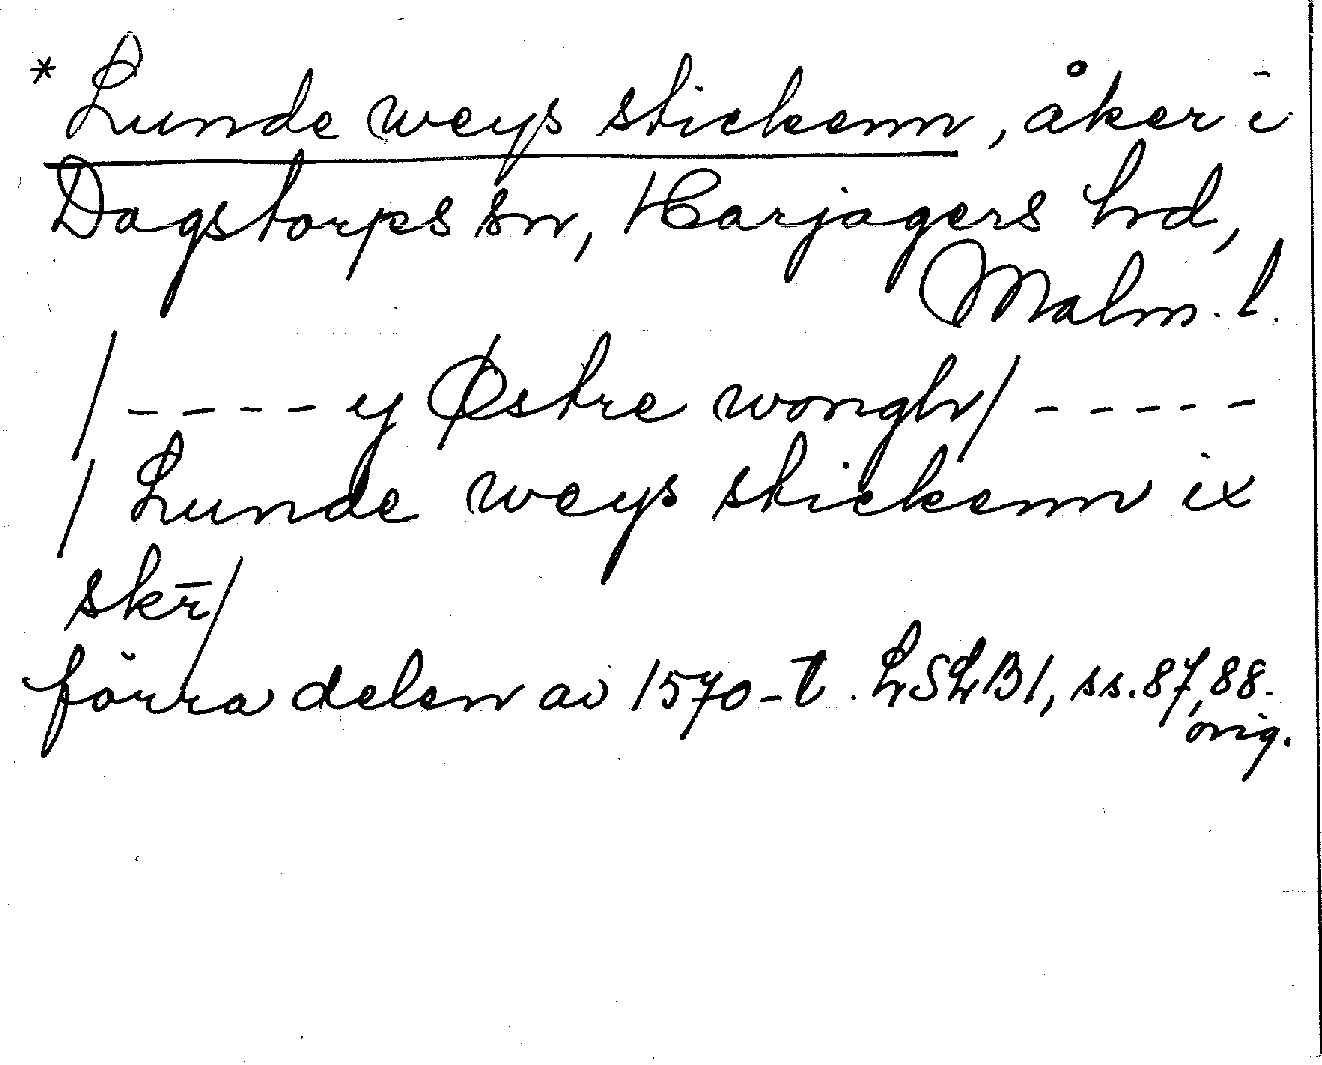 * Lunde weys stickenn, åker i
Dagstorps sn, Harjagers hd,
Malm. l.
/ - - - - y Østre wongh / - - - - -
/ Lunde weys stickenn ix
skr̄ /
förra delen av 1570-t. LSLB1, ss. 87, 88.
orig.